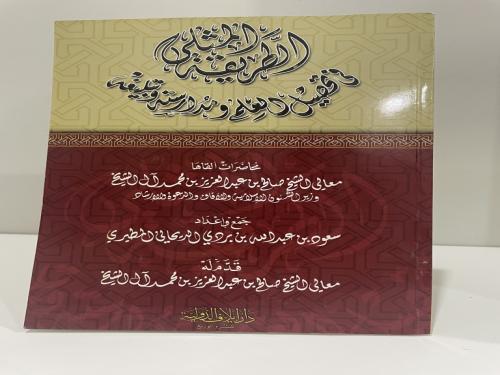 الطريقة المثلى
في تحصيل العلم ومدارسته وتبليغه
محاضرات ألقاها
معالي الشيخ صالح بن عبد العزيز بن محمد آل الشيخ
وزير الشئون الإسلامية والأوقاف والدعوة والإرشاد
جمع وإعداد
سعود بن عبد الله بن بردي الديحاني المطيري
قدم له
معالي الشيخ صالح بن عبد العزيز بن محمد آل الشيخ
دار إيلاف الدولية